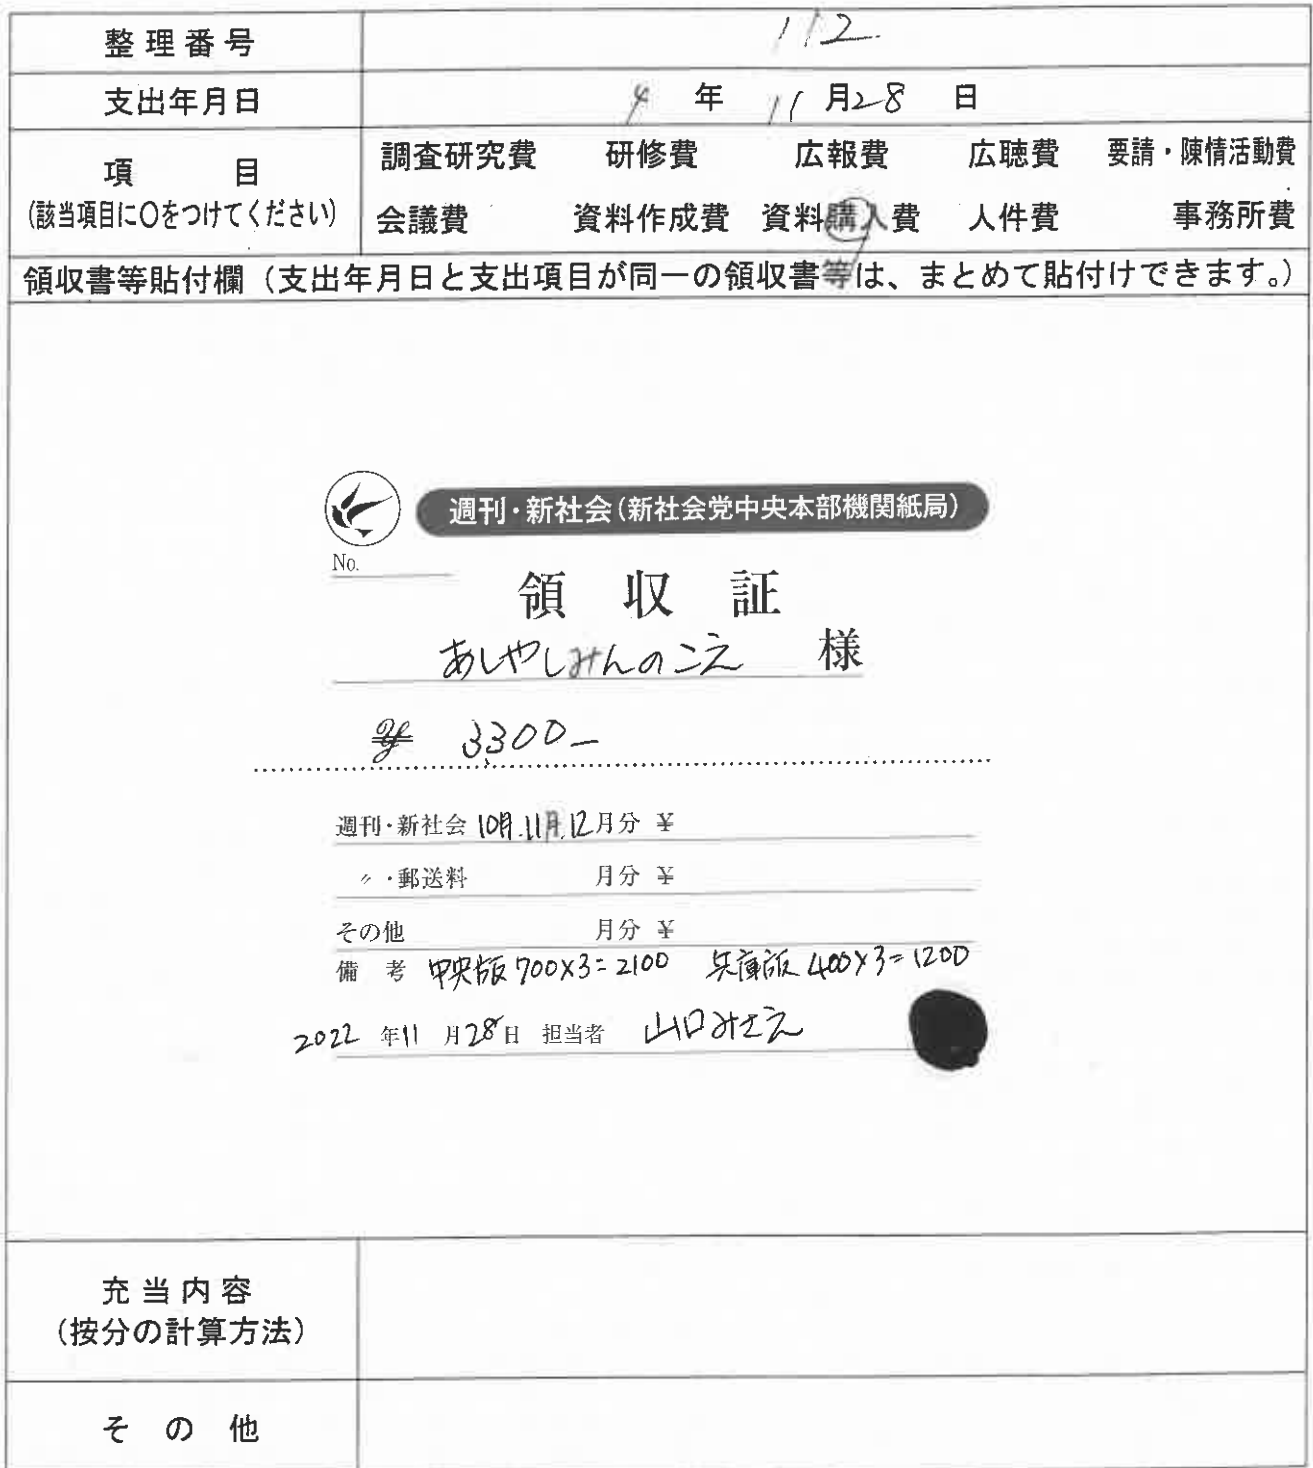 整理番号 112.
支出年月日 4年11月28日
項目 調査研究費 研修費 広報費 広聴費 要請・陳情活動費
(該当項目に○をつけてください) 会議費 資料作成費 資料購入費 人件費 事務所費
領収書等貼付欄（支出年月日と支出項目が同一の領収書等は、まとめて貼付けできます。）
週刊・新社会(新社会党中央本部機関紙局)
No.
領収証
あしやしみんのこえ 様
¥ 3300-
週刊・新社会 10月.11月.12月分 ¥
〃・郵送料 月分 ¥
その他 月分 ¥
備考 中央版 700×3=2100 兵庫版 400×3=1200
2022年11月28日 担当者 山口みさえ
充当内容
(按分の計算方法)
その他